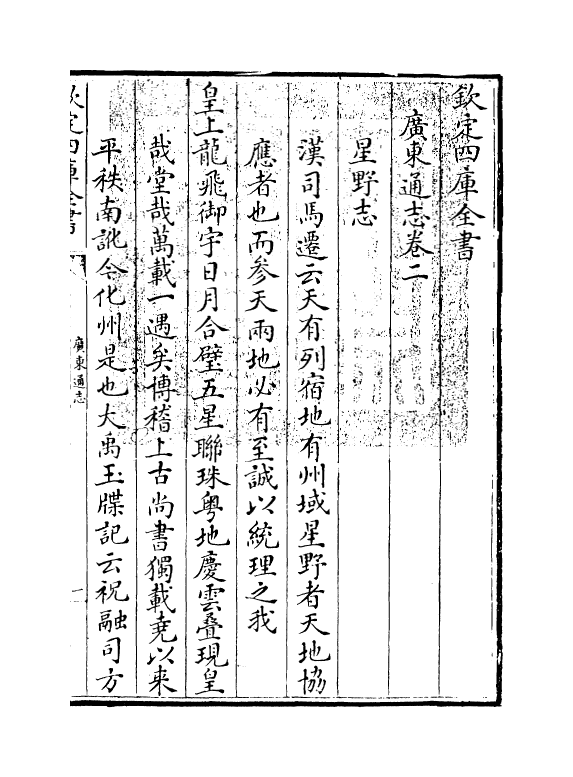 欽定四庫全書
廣東通志卷二
星野志
漢司馬遷云天有列宿地有州域星野者天地協
應者也而參天兩地必有至誠以統理之我
皇上龍飛御宇日月合璧五星聯珠粤地慶雲叠現皇
哉堂哉萬載一遇矣博稽上古尚書獨載堯以來
平秩南訛今化州是也大禹玉牒記云祝融司方
欽定四庫全書
廣東通志
一